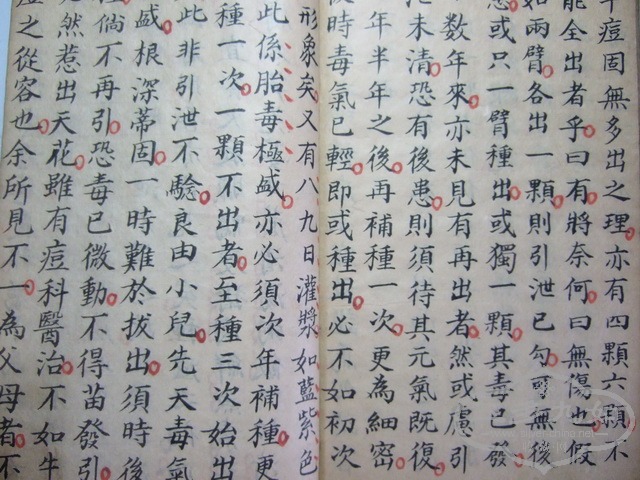 痘固無多出之理亦有四顆六顆不
能全出者乎曰有將奈何曰無傷也假
如兩臂各出一顆則引泄已勾可無後
患或只一臂種出或獨一顆其毒已發
數年來亦未見有再出者然或慮引
泄未清恐有後患則須待其元氣既復
年半年之後再補種一次更為細密
彼時毒氣已輕即或種出必不如初次
形象矣又有八九日灌漿如藍紫色
此係胎毒極盛亦必須次年補種更
種一次一顆不出者至種三次始出
此非引泄不驗良由小兒先天毒氣
盛根深蒂固一時難於拔出須時後
倘不再引恐毒已微動不得苗發引
然惹出天花雖有痘科醫治不如牛
之從容也余所見不一為父母者不